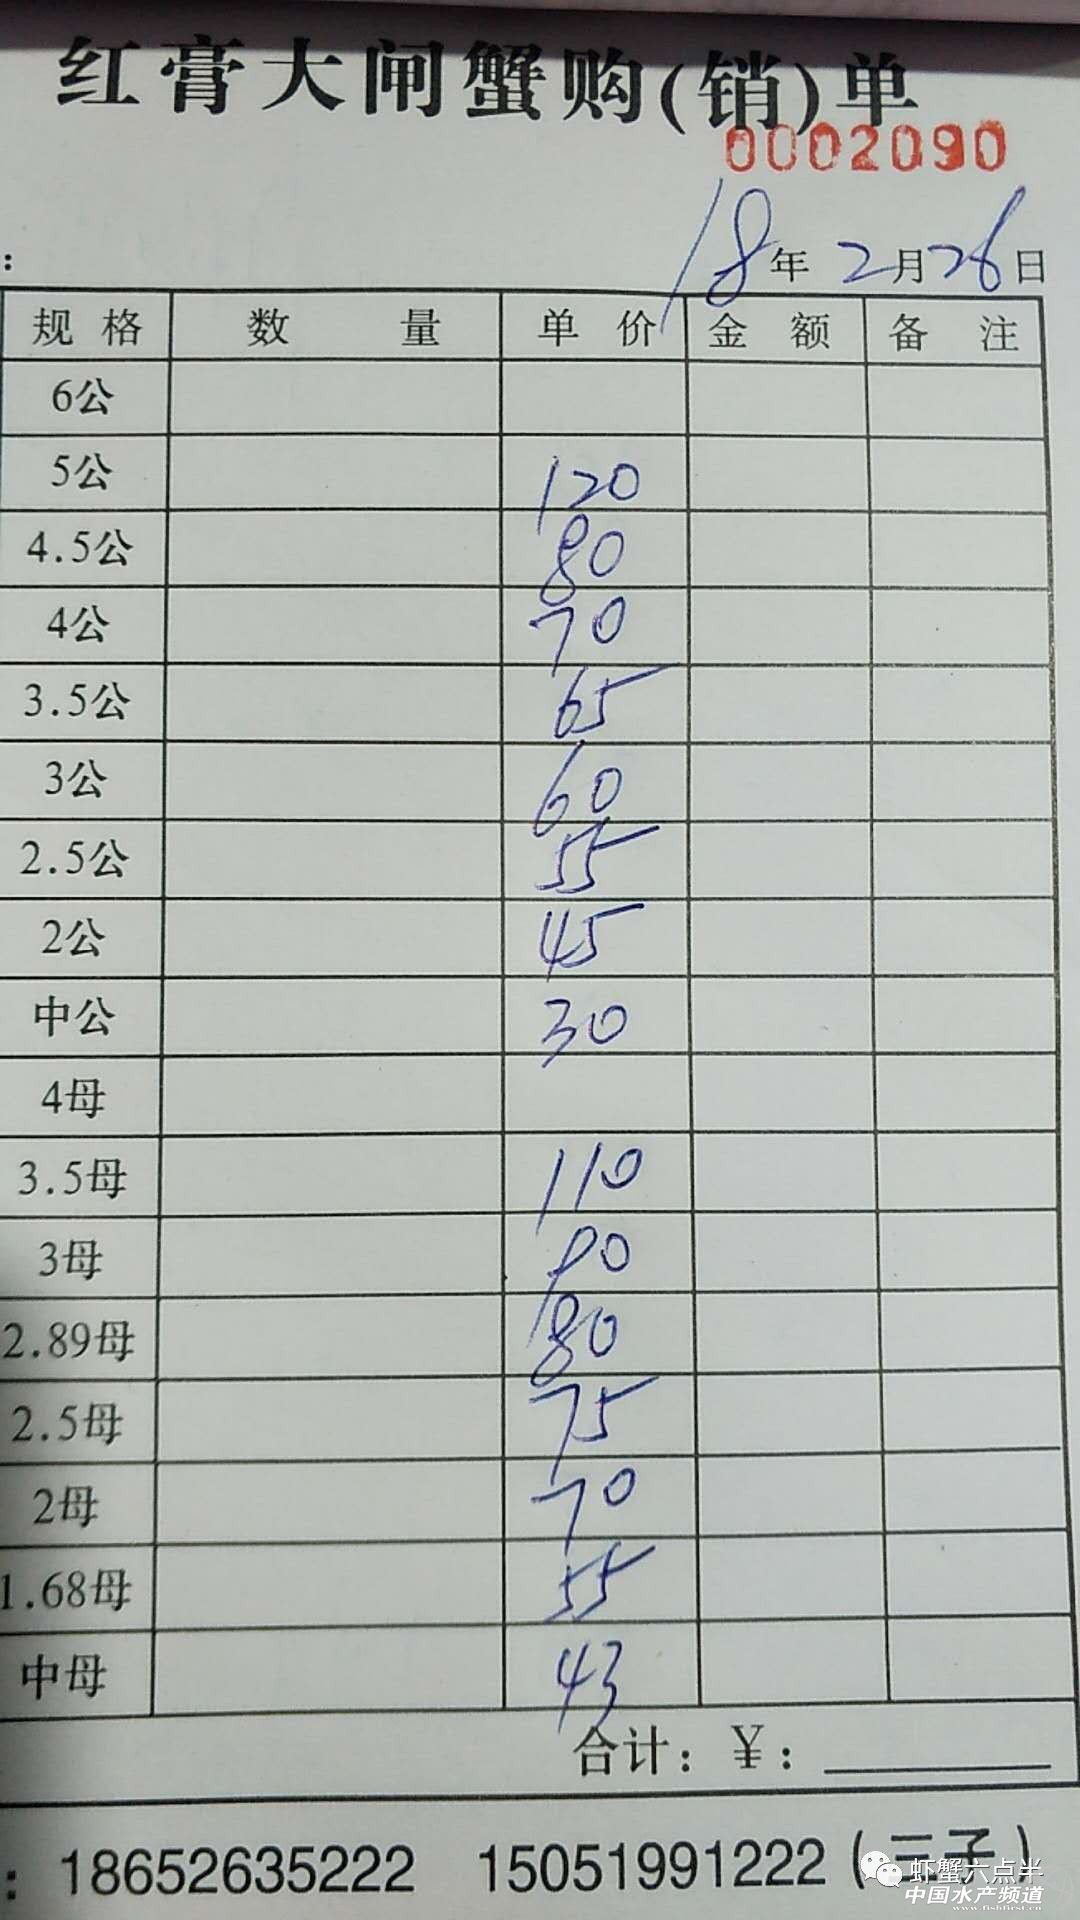 红膏大闸蟹购(销)单
0002090
: 18年 2月26日
规格 数量 单价 金额 备注
6公
5公 120
4.5公 80
4公 70
3.5公 65
3公 60
2.5公 55
2公 45
中公 30
4母
3.5母 110
3母 90
2.89母 80
2.5母 75
2母 70
1.68母 55
中母 43
合计: ¥:
: 18652635222 15051991222
虾蟹六点半
中国水产频道
www.fishfirst.cn